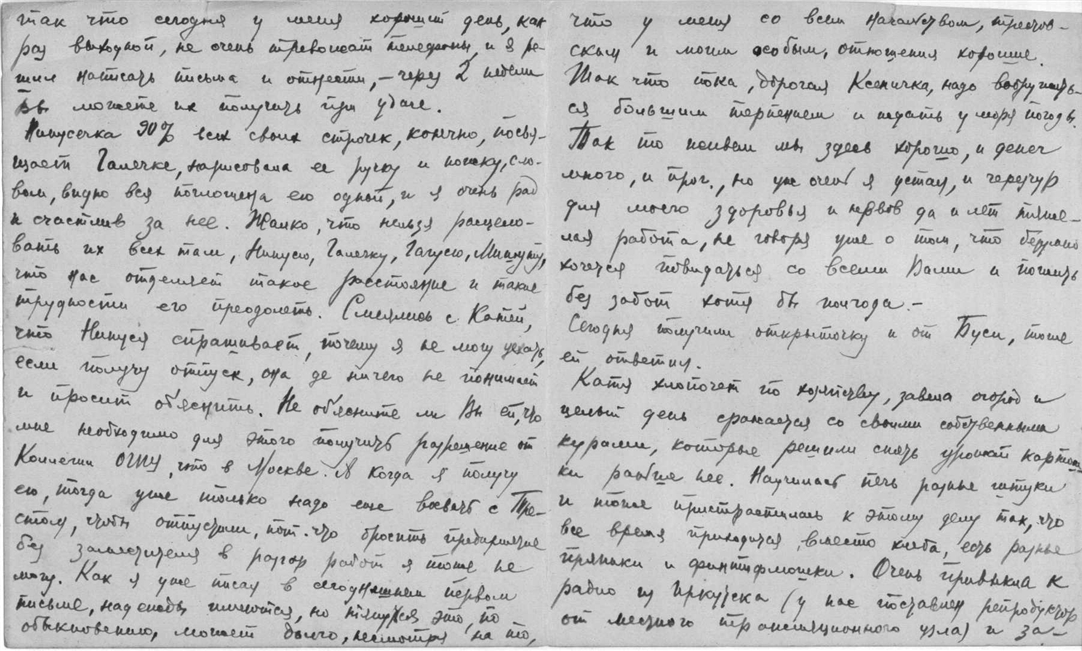 так что сегодня у меня хороший день, как
раз выходной, не очень тревожат телефоны и я ре-
шил написать письма и отнести, – через 2 недели
Вы можете их получить при удаче.
Нинусечка 90% всех своих строчек, конечно, посвя-
щает Галечке, нарисовала ее ручку и ножку, сло-
вом, видно вся поглощена ею одной, и я очень рад
и счастлив за нее. Жалко, что нельзя расцело-
вать их всех там, Нинусю, Галечку, Гагусю, Минуту,
что нас отделяет такое расстояние и такие
трудности его преодолеть. Смеялись с Катей,
что Нинуся спрашивает, почему я не могу уехать,
если получу отпуск, она де ничего не понимает
и просит объяснить. Не объясните ли Вы ей, что
мне необходимо для этого получить разрешение от
Коллегии ОГПУ, что в Москве. А когда я получу
его, тогда уже только надо еще воевать с Тре-
стом, чтобы отпустили, пот. что бросить предприятие
без заместителя в разгар работ я тоже не
могу. Как я уже писал в сегодняшнем первом
письме, надежды имеются, но тянуться это, по
обыкновению, может долго, несмотря на то,
что у меня со всем начальством, трестов-
ским и моим особым, отношения хорошие.
Так что пока, дорогая Ксеничка, надо вооружить-
ся большим терпением и ждать у моря погоды.
Так то живем мы здесь хорошо, и денег
много, и проч., но уж очень я устал, и чересчур
для моего здоровья и нервов да и лет тяже-
лая работа, не говоря уже о том, что безумно
хочется повидаться со всеми Вами и пожить
без забот хотя бы полгода. –
Сегодня получили открыточку и от Буси, тоже
ей ответил.
Катя хлопочет по хозяйству, завела огород и
целый день сражается со своими собственными
курами, которые решили снять урожай картош-
ки раньше нее. Научилась печь разные штуки
и тоже пристрастилась к этому делу так, что
все время приходится, вместо хлеба, есть разные
пряники и финтифлюшки. Очень привыкла к
радио из Иркутска (у нас поставлен репродуктор
от местного трансляционного узла) и за-